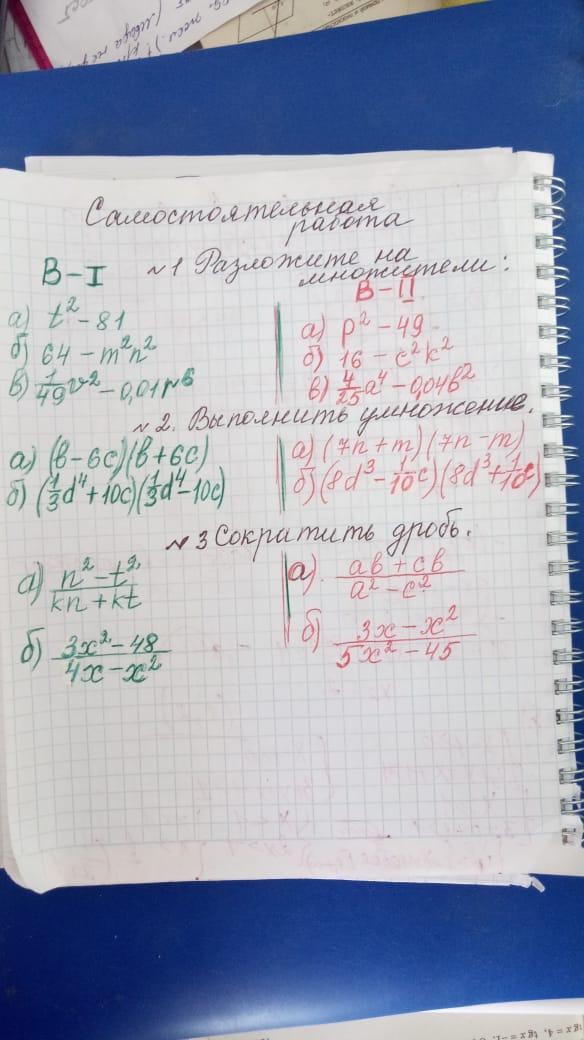 Самостоятельная
работа
В-I №1 Разложите на
множители:
В-II
а) t² - 81
б) 64 - m²n²
в) 1/49 v² - 0,01p⁶
а) p² - 49
б) 16 - c²k²
в) 4/25 a⁴ - 0,04b²
№2. Выполнить умножение.
а) (b - 6c)(b + 6c)
б) (1/3 d⁴ + 10c)(1/3 d⁴ - 10c)
а) (7n + m)(7n - m)
б) (8d³ - 1/10 c)(8d³ + 1/10 c)
№3 Сократить дробь.
а) (n² - t²)/(kn + kt)
б) (3x² - 48)/(4x - x²)
а) (ab + cb)/(a² - c²)
б) (3x - x²)/(5x² - 45)